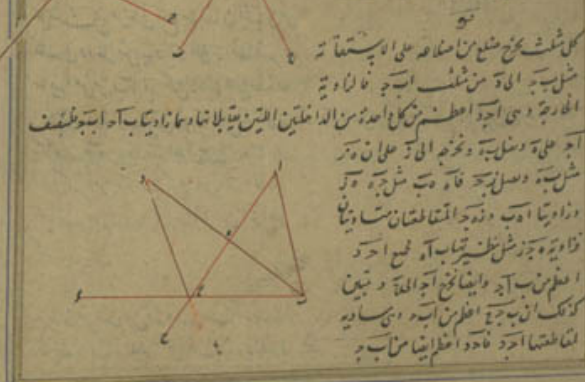 كل مثلث يخرج ضلع من اضلاعه على الاستقامة
مثل بج الى د من مثلث ابج فالزاوية
الخارجة وهى اجد اعظم من كل واحدة من الداخلتين اللتين يقابلانها وهما زاويتا باج ابج فلننصف
اج على ه ونصل به ونخرجه الى ز على ان هز
مثل به ونصل زج فاه هب مثل جه هز
وزاويتا اهب زهج المتقاطعتان متساويتان
فزاوية هجز مثل نظيرتها باه فجميع اجد
اعظم من باج وايضا نخرج اج الى ح ونبين
كذلك ان بجح اعظم من ابج وهى مساوية
لمقاطعتها اجد فاجد اعظم ايضا من ابج